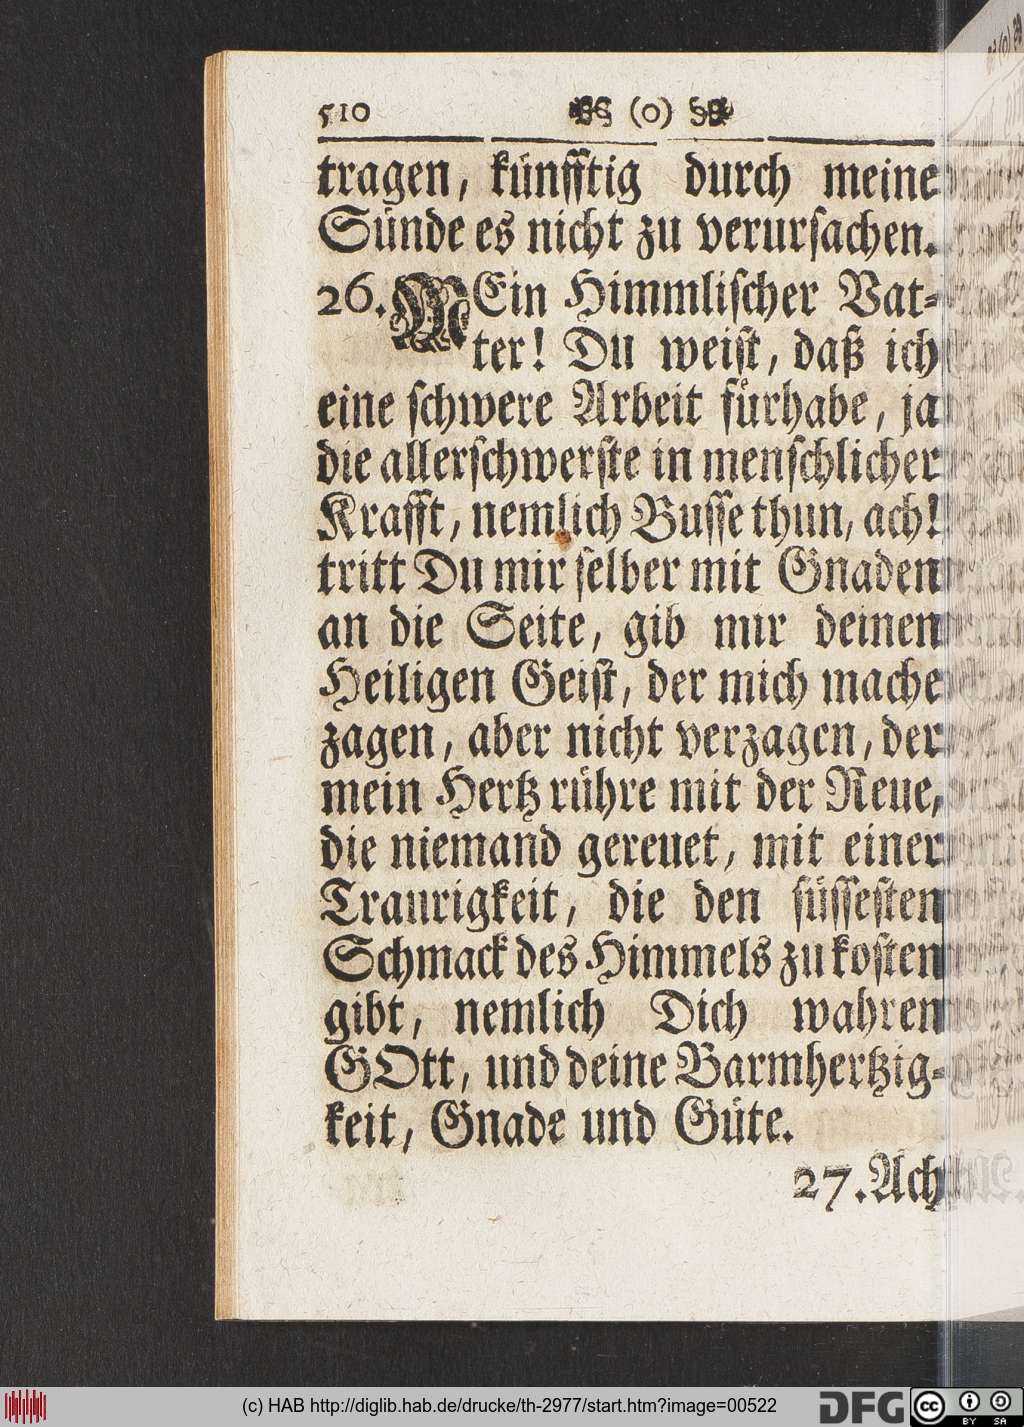 510 (0)
tragen, künfftig durch meine
Sünde es nicht zu verursachen.
26. MEin Himmlischer Vat-
ter! Du weist, daß ich
eine schwere Arbeit fürhabe, ja
die allerschwerste in menschlicher
Krafft, nemlich Busse thun, ach!
tritt Du mir selber mit Gnaden
an die Seite, gib mir deinen
Heiligen Geist, der mich mache
zagen, aber nicht verzagen, der
mein Hertz rühre mit der Reue,
die niemand gereuet, mit einer
Traurigkeit, die den süssesten
Schmack des Himmels zu kosten
gibt, nemlich Dich wahren
GOtt, und deine Barmhertzig-
keit, Gnade und Güte.
27. Ach
(c) HAB http://diglib.hab.de/drucke/th-2977/start.htm?image=00522
DFG
CC BY SA